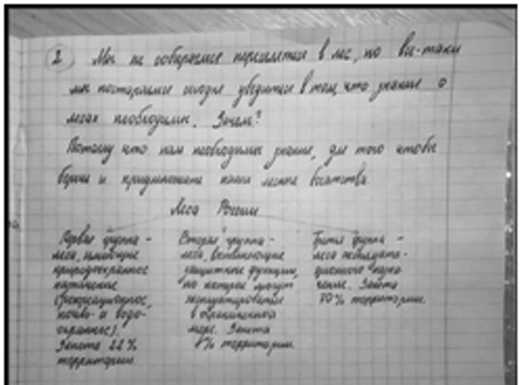 2 Мы не собираемся переселяться в лес, но всё-таки
мы постараемся сегодня убедиться в том, что знание о
лесах необходимы. Зачем?
Потому что нам необходимы знание, для того чтобы
беречь и приумножать наши лесные богатства.
Леса России
Первая группа -
леса, имеющие
природоохранное
назначение
(рекреационное,
почво- и водо-
охранные).
Занята 22%
территории.
Вторая группа -
леса, включающие
защитные функции,
но которые могут
эксплуатироваться
в ограниченной
мере. Занята
8% территории.
Третья группа -
леса эксплуата-
ционного назна-
чения. Занята
70% территории.